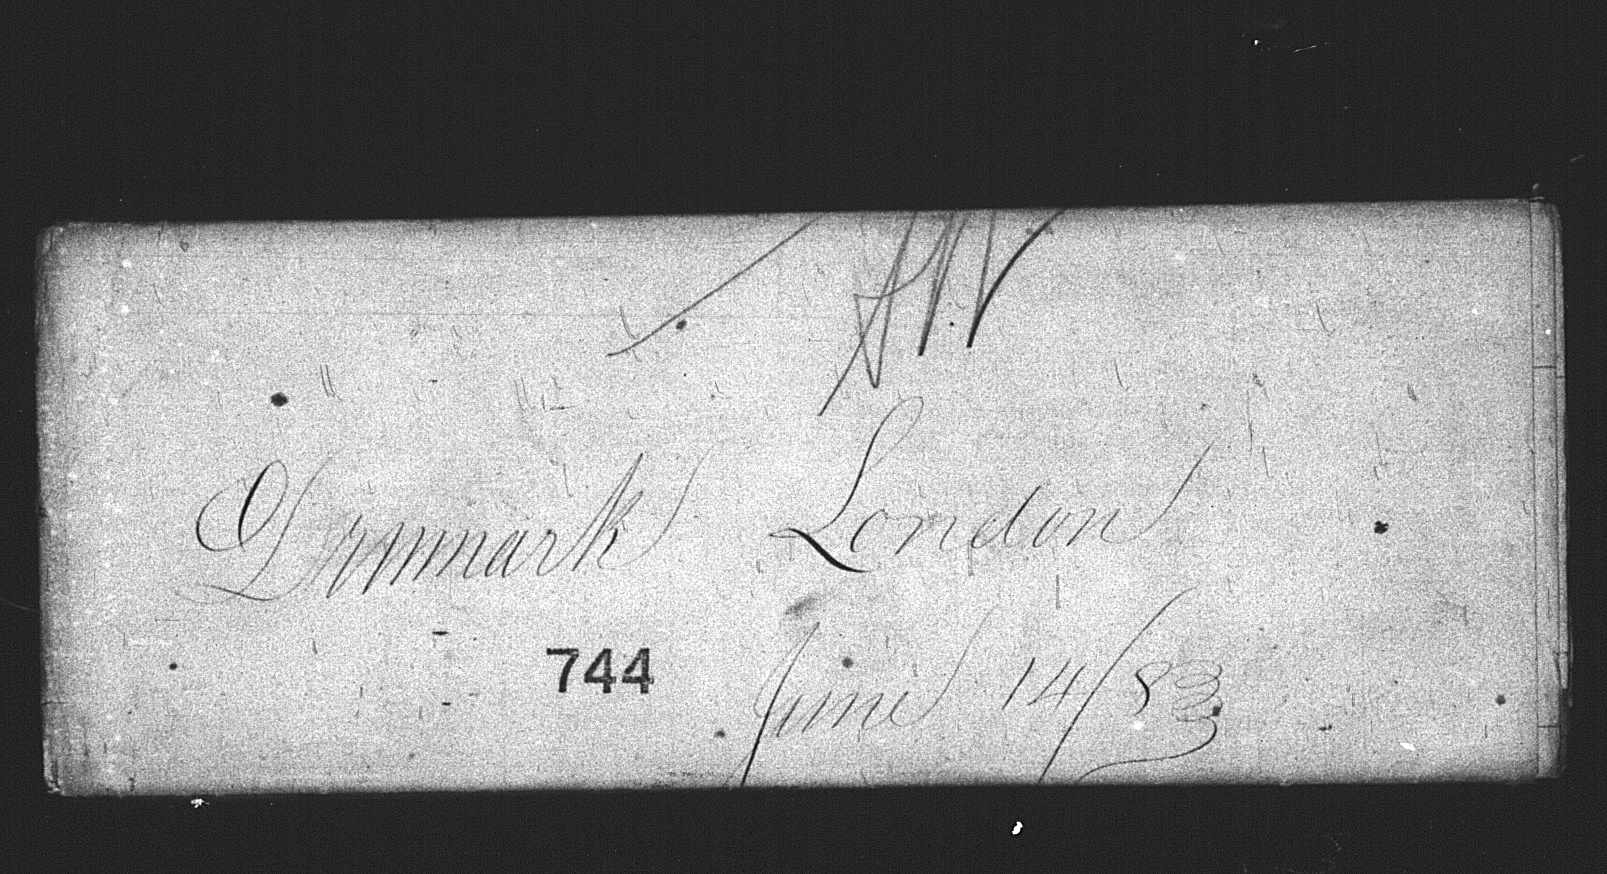 Denmark London
744 June 14/83